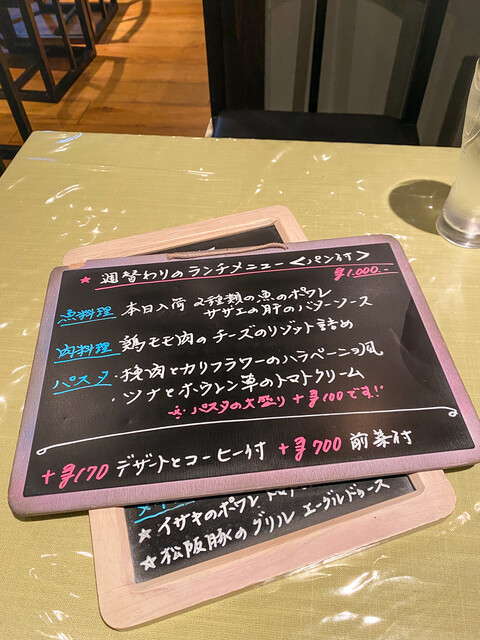 ★ 週替わりのランチメニュー <パン付>
¥1.000.-
魚料理 本日入荷 2種類の魚のポワレ
サザエの肝のバターソース
肉料理 鶏モモ肉のチーズのリゾット詰め
パスタ ・挽肉とカリフラワーのハラペーニョ風
・ツナとホウレン草のトマトクリーム
※パスタの大盛り +¥100です!!
+¥170 デザートとコーヒー付 +¥700 前菜付
★イサキのポワレ
★松阪豚のグリル エーグルドゥース